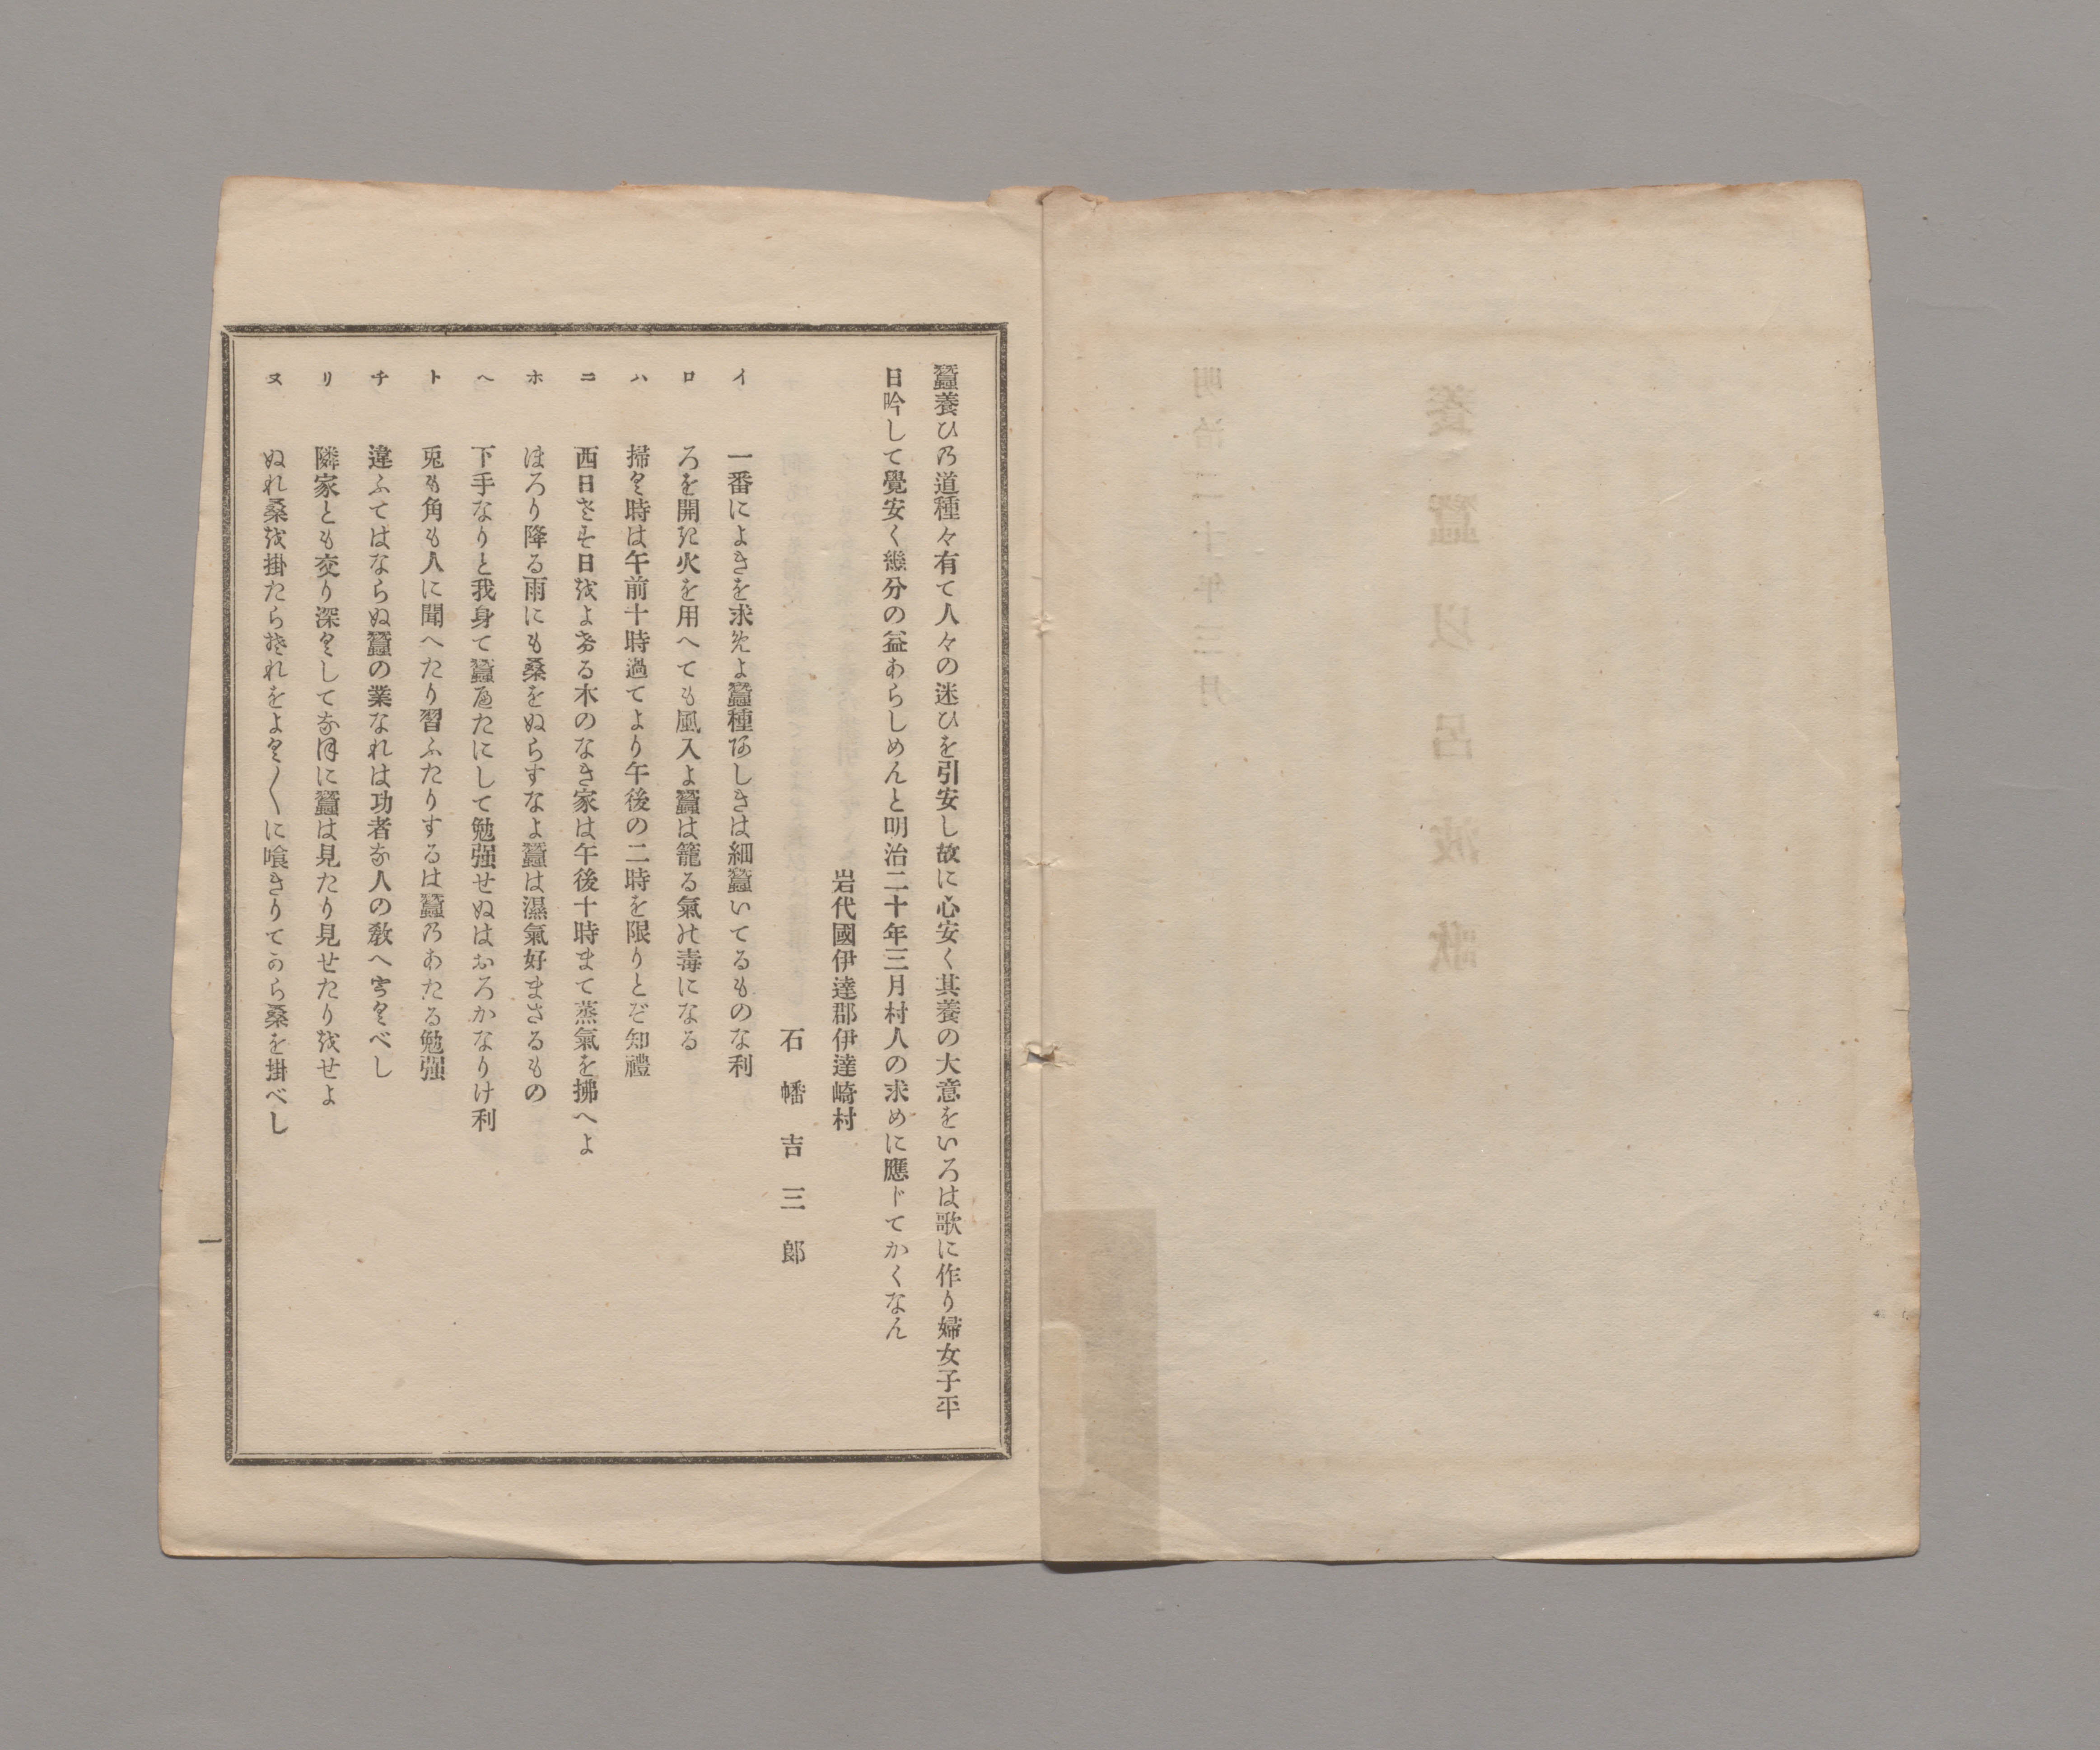 養蠶以呂波歌
明治二十年三月
蠶養ひ乃道種々有て人々の迷ひを引安し故に心安く其養の大意をいろは歌に作り婦女子平
日吟して覺安く幾分の益あらしめんと明治二十年三月村人の求めに應ドてかくなん
岩代國伊達郡伊達崎村
石幡吉三郎
イ 一番によきを求めよ蠶種あしきは細蠶いてるものな利
ロ ろを開き火を用へても風入よ蠶は籠る氣か毒になる
ハ 掃く時は午前十時過てより午後の二時を限りとぞ知禮
ニ 西日さす日をよける木のなき家は午後十時まて蒸氣を拂へよ
ホ ほろり降る雨にも桑をぬらすなよ蠶は濕氣好まさるもの
ヘ 下手なりと我身て蠶へたにして勉强せぬはおろかなりけ利
ト 兎も角も人に聞へたり習ふたりするは蠶乃あたる勉强
チ 違ふてはならぬ蠶の業なれは功者な人の敎へきくべし
リ 隣家とも交り深くしてな日に蠶は見たり見せたりをせよ
ヌ ぬれ桑を掛たらそれをよく〱に喰きりてから桑を掛べし
一